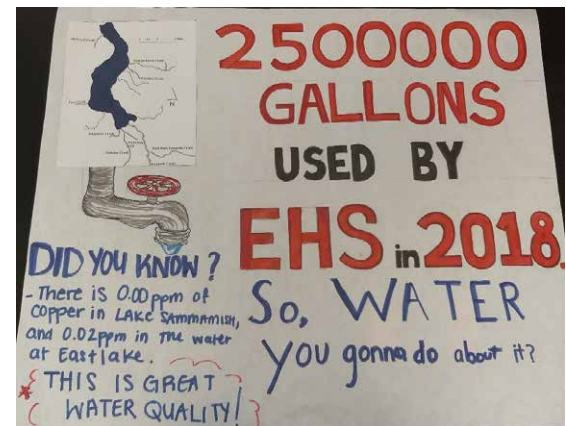 2500000
GALLONS
USED BY
EHS in 2018.
So, WATER
You gonna do about it?
DID YOU KNOW?
- There is 0.00 ppm of
copper in LAKE SAMMAMISH,
and 0.02ppm in the water
at Eastlake.
THIS IS GREAT
WATER QUALITY!
N